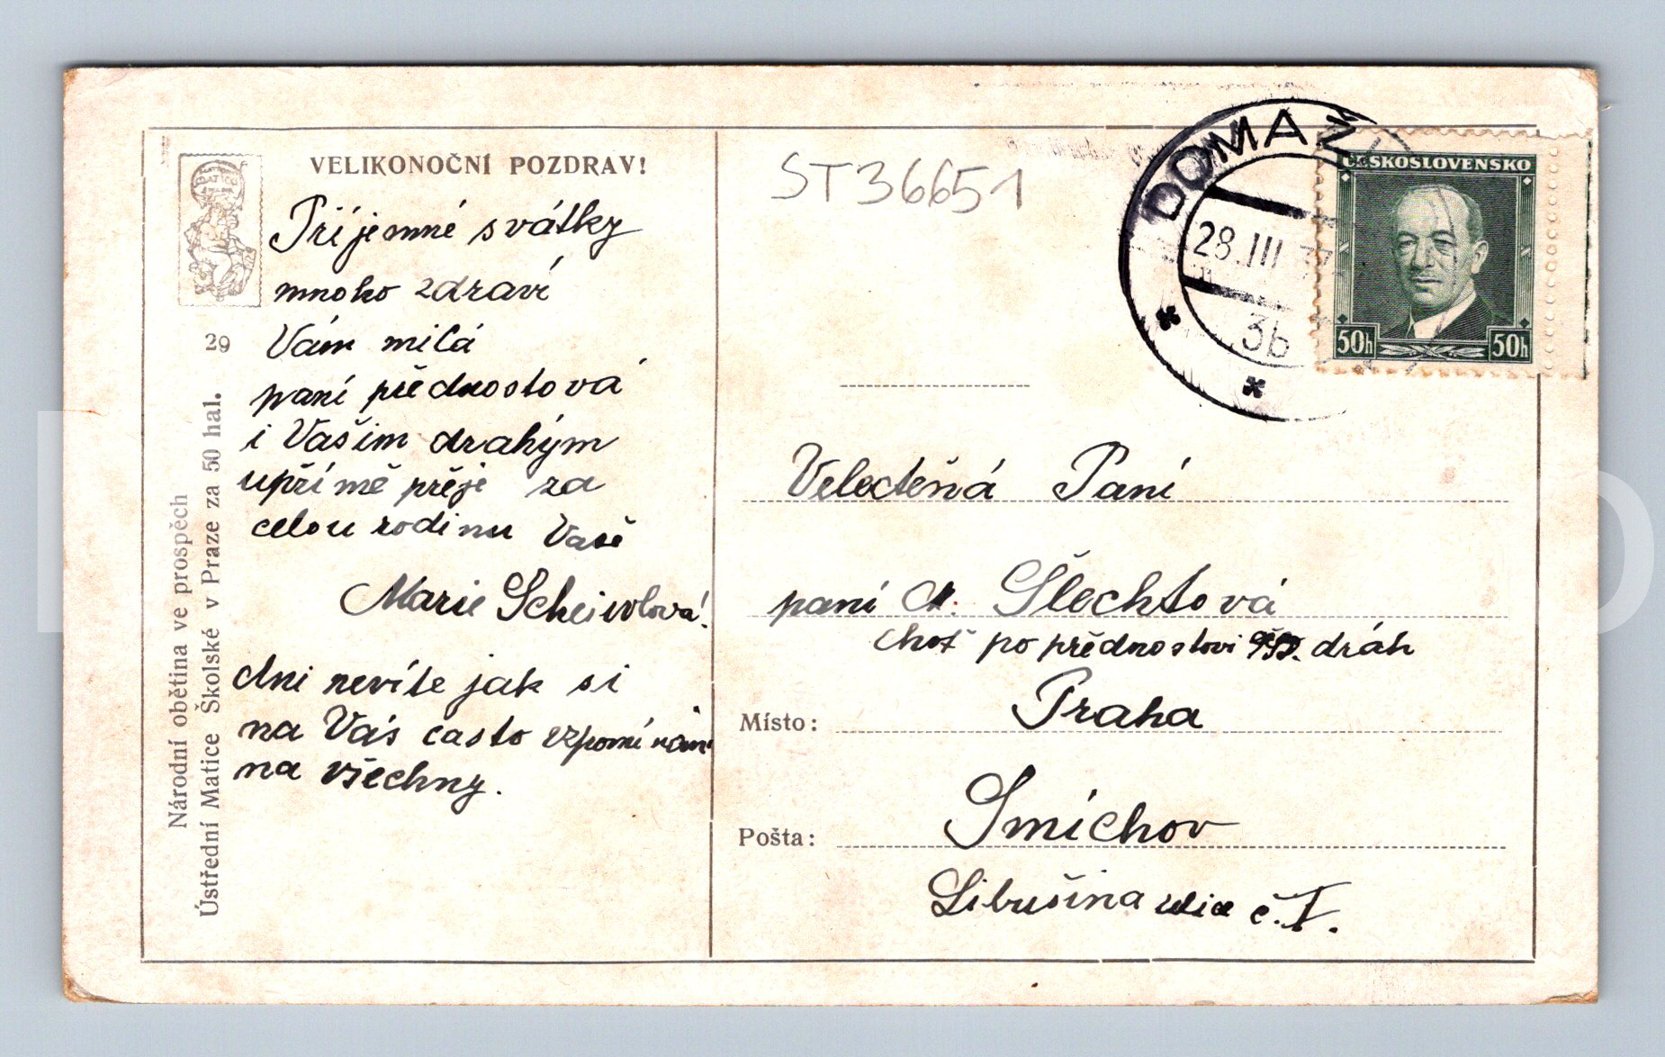 VELIKONOČNÍ POZDRAV!
Příjemné svátky
mnoho zdraví
Vám milá
paní přednostová
i Vašim drahým
upřímě přeje za
celou rodinu Vaše
Marie
dni nevíte jak si
na Vás často vzpomínám
na všechny.
29
Národní obětina ve prospěch
Ústřední Matice Školské v Praze za 50 hal.
ST36651
DOMAŽ
28.III 37
3b
ČESKOSLOVENSKO
50h 50h
Velectěná Paní
paní Šlechtová
choť po přednostovi dráh
Místo: Praha
Pošta: Smíchov
Libušina ulice č. I.